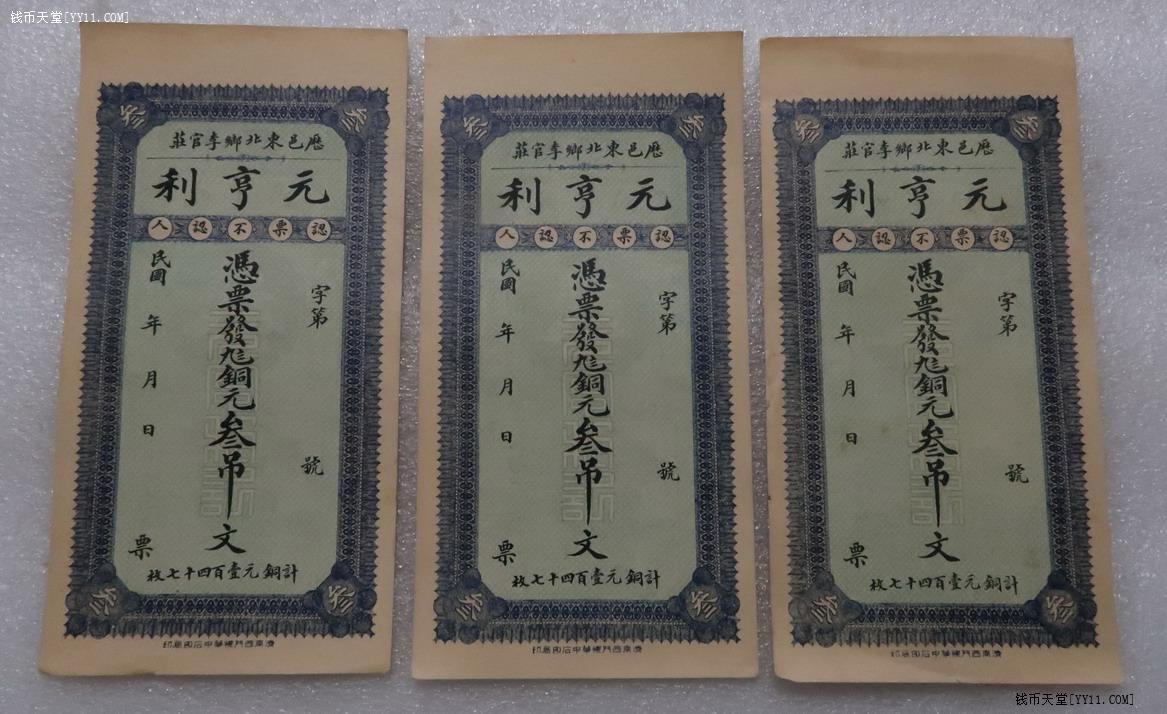 钱币天堂[YY11.COM]
叁 叁
厯邑東北鄉李官莊
元亨利
認票不認人
字第 號
憑票發 銅元叁吊文
民國 年 月 日
票
計銅元壹百四十七枚
叁 叁
濟南西門裡華中石印局印
叁 叁
厯邑東北鄉李官莊
元亨利
認票不認人
字第 號
憑票發 銅元叁吊文
民國 年 月 日
票
計銅元壹百四十七枚
叁 叁
濟南西門裡華中石印局印
叁 叁
厯邑東北鄉李官莊
元亨利
認票不認人
字第 號
憑票發 銅元叁吊文
民國 年 月 日
票
計銅元壹百四十七枚
叁 叁
濟南西門裡華中石印局印
钱币天堂[YY11.COM]